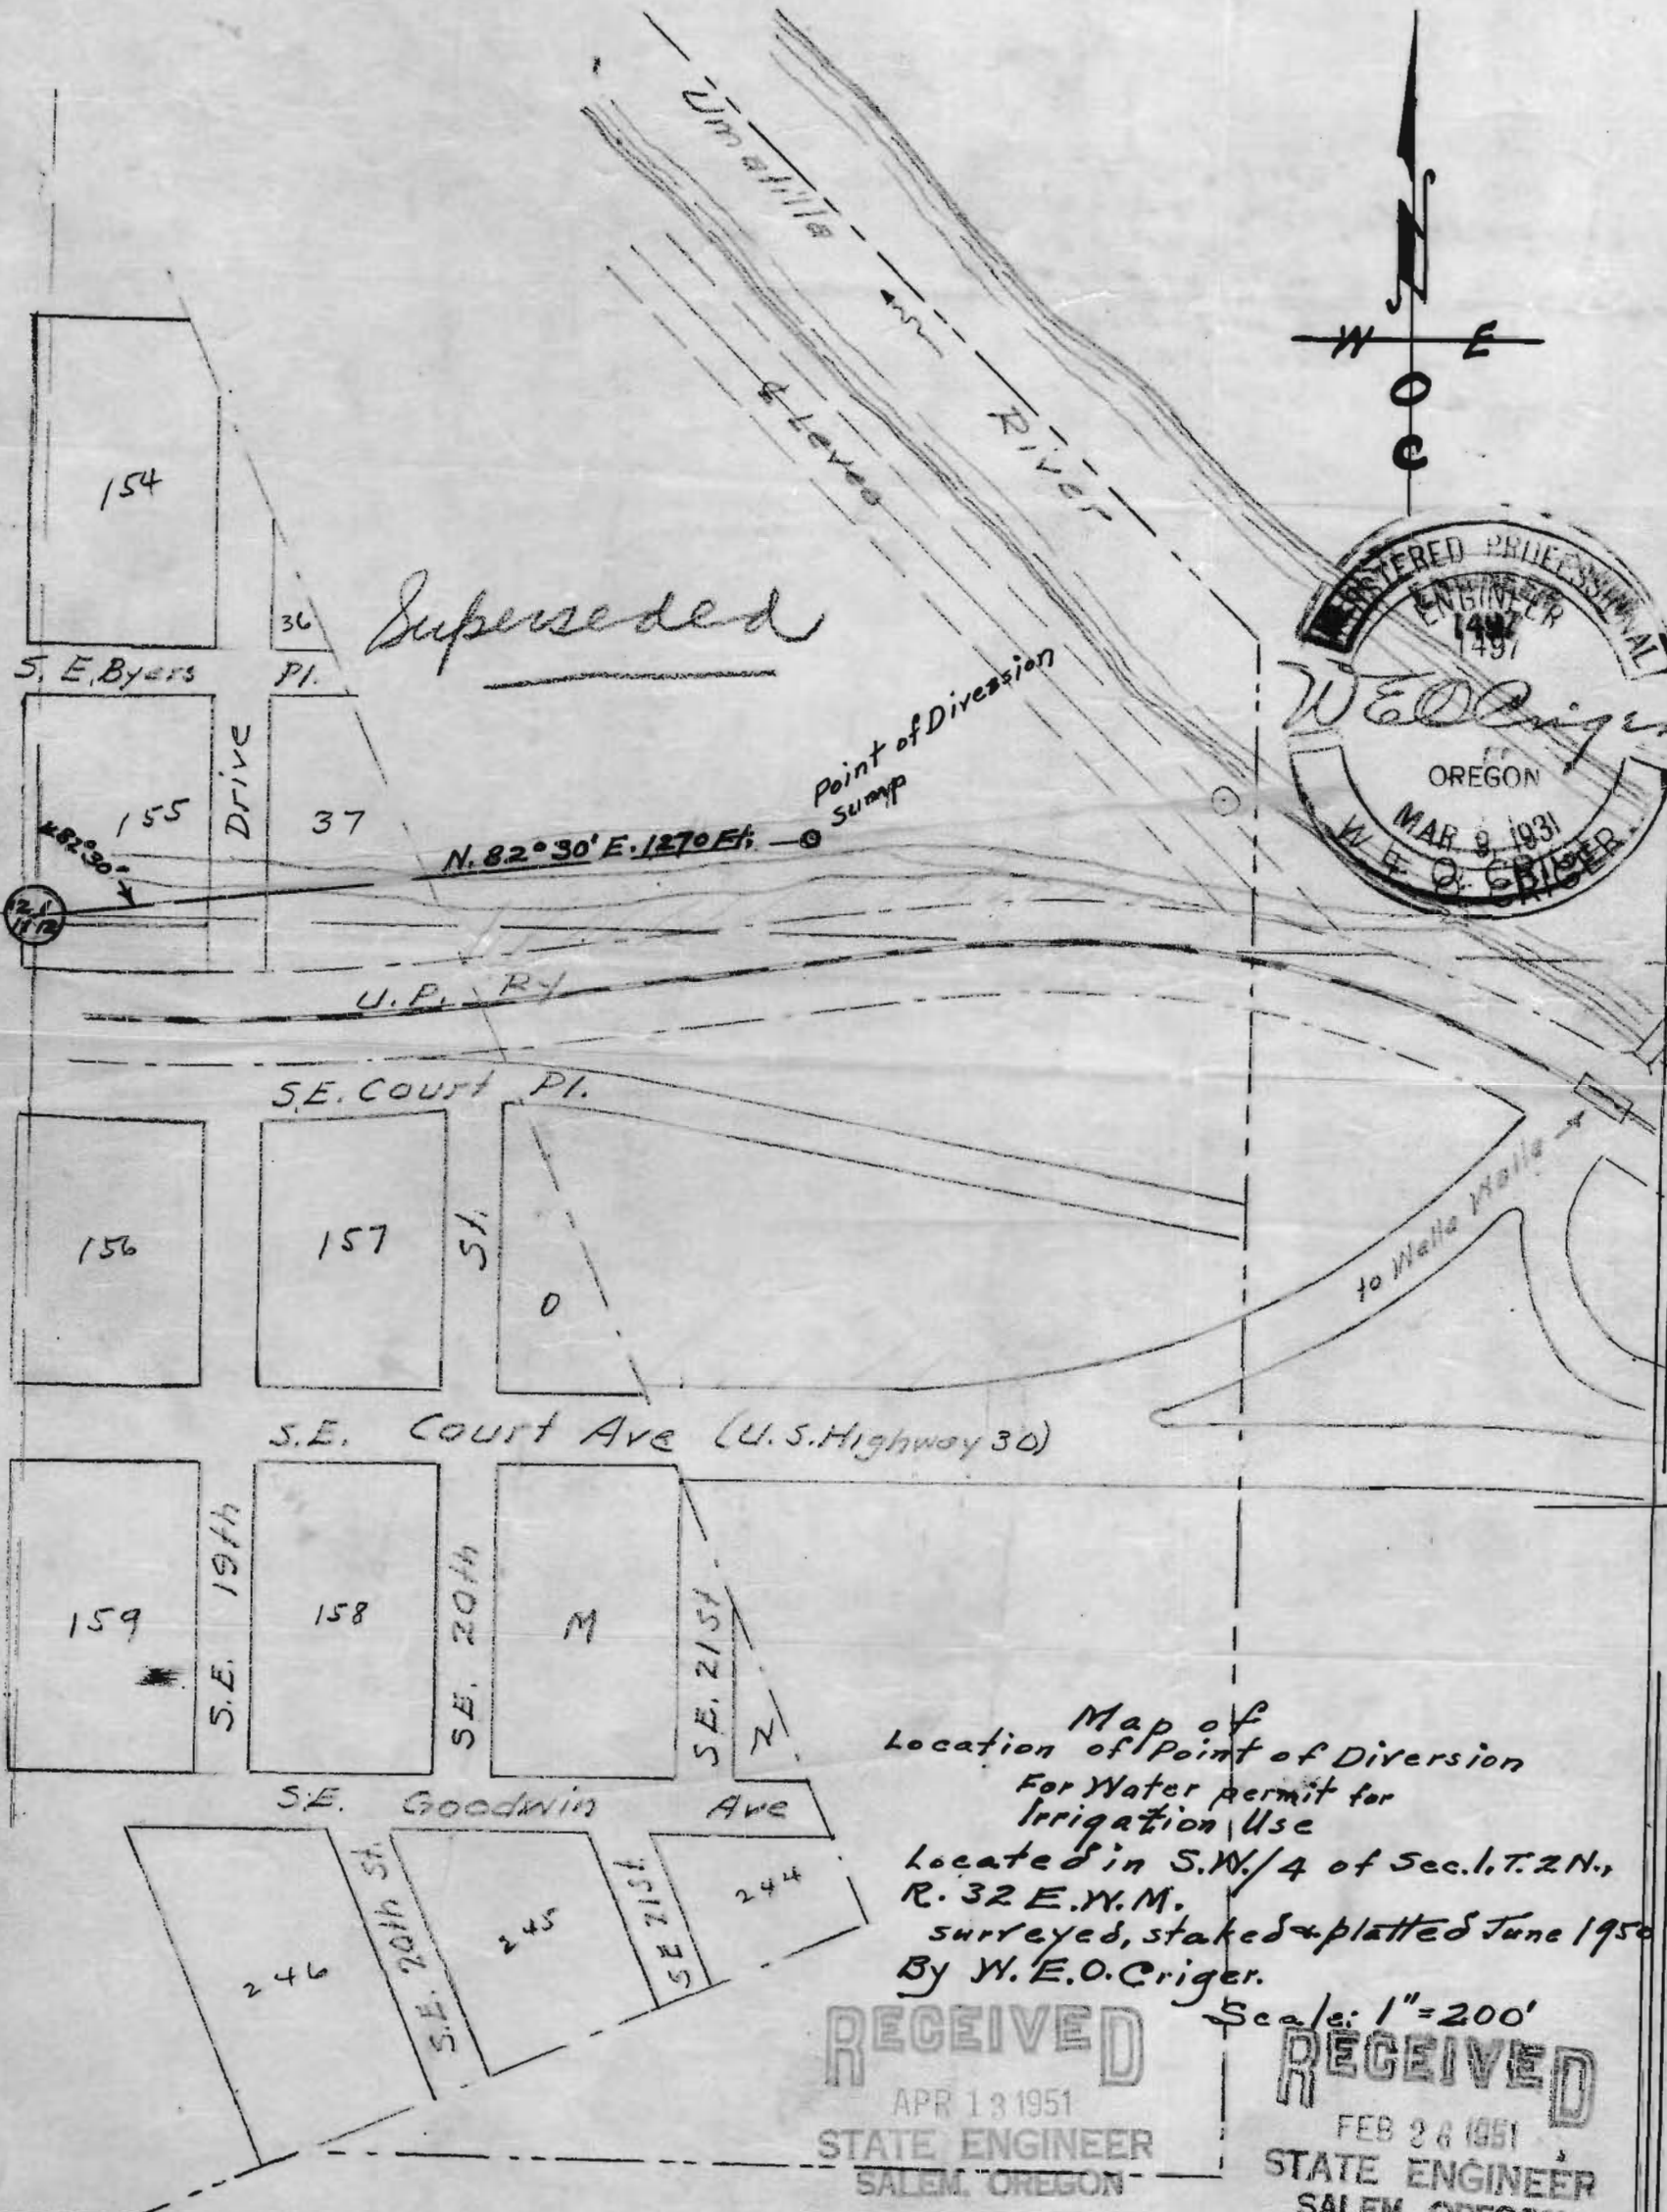 Umatilla
River
℄ Levee
W E
O
C
REGISTERED PROFESSIONAL
ENGINEER
1497
1497
W E O Criger
OREGON
MAR 9 1931
W. E. O. CRIGER
154
36
Superseded
S. E. Byers Pl.
Point of Divession
sump
155
Drive
37
N82°30'
N. 82°30' E. 1270 Ft.
2 1
11 12
U.P. Ry
S.E. Court Pl.
156
157
St.
O
to Walla Walla
S.E. Court Ave (U.S. Highway 30)
159
S.E. 19th
158
S.E. 20th
M
S.E. 21st
N
S.E. Goodwin Ave
246
S.E. 20th St.
245
SE 21St.
244
Map of
Location of Point of Diversion
For Water permit for
Irrigation Use
Located in S.W.1/4 of Sec.1, T.2N.,
R. 32 E.W.M.
surveyed, staked & platted June 1950
By W.E.O. Criger.
Scale: 1"=200'
RECEIVED
APR 13 1951
STATE ENGINEER
SALEM. OREGON
RECEIVED
FEB 26 1951
STATE ENGINEER
SALEM. OREGON